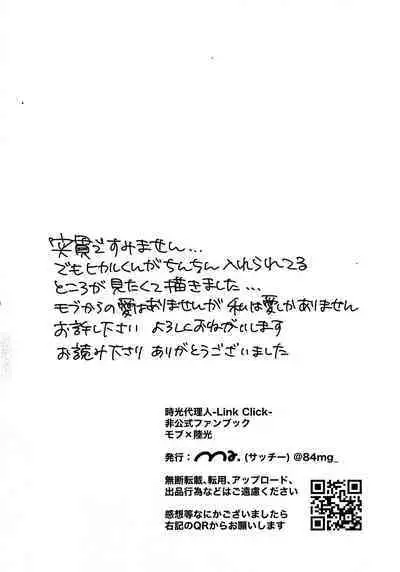 突貫ですみません…
でもヒカルくんがちんちん入れられてる
ところが見たくて描きました…
モブからの愛はありませんが私は愛しかありません
お許し下さい よろしくおねがいします
お読み下さり ありがとうございました
時光代理人-Link Click-
非公式ファンブック
モブ×陸光
発行： (サッチー) @84mg_
無断転載、転用、アップロード、
出品行為などはご遠慮ください
感想等なにかございましたら
右記のQRからお願いします